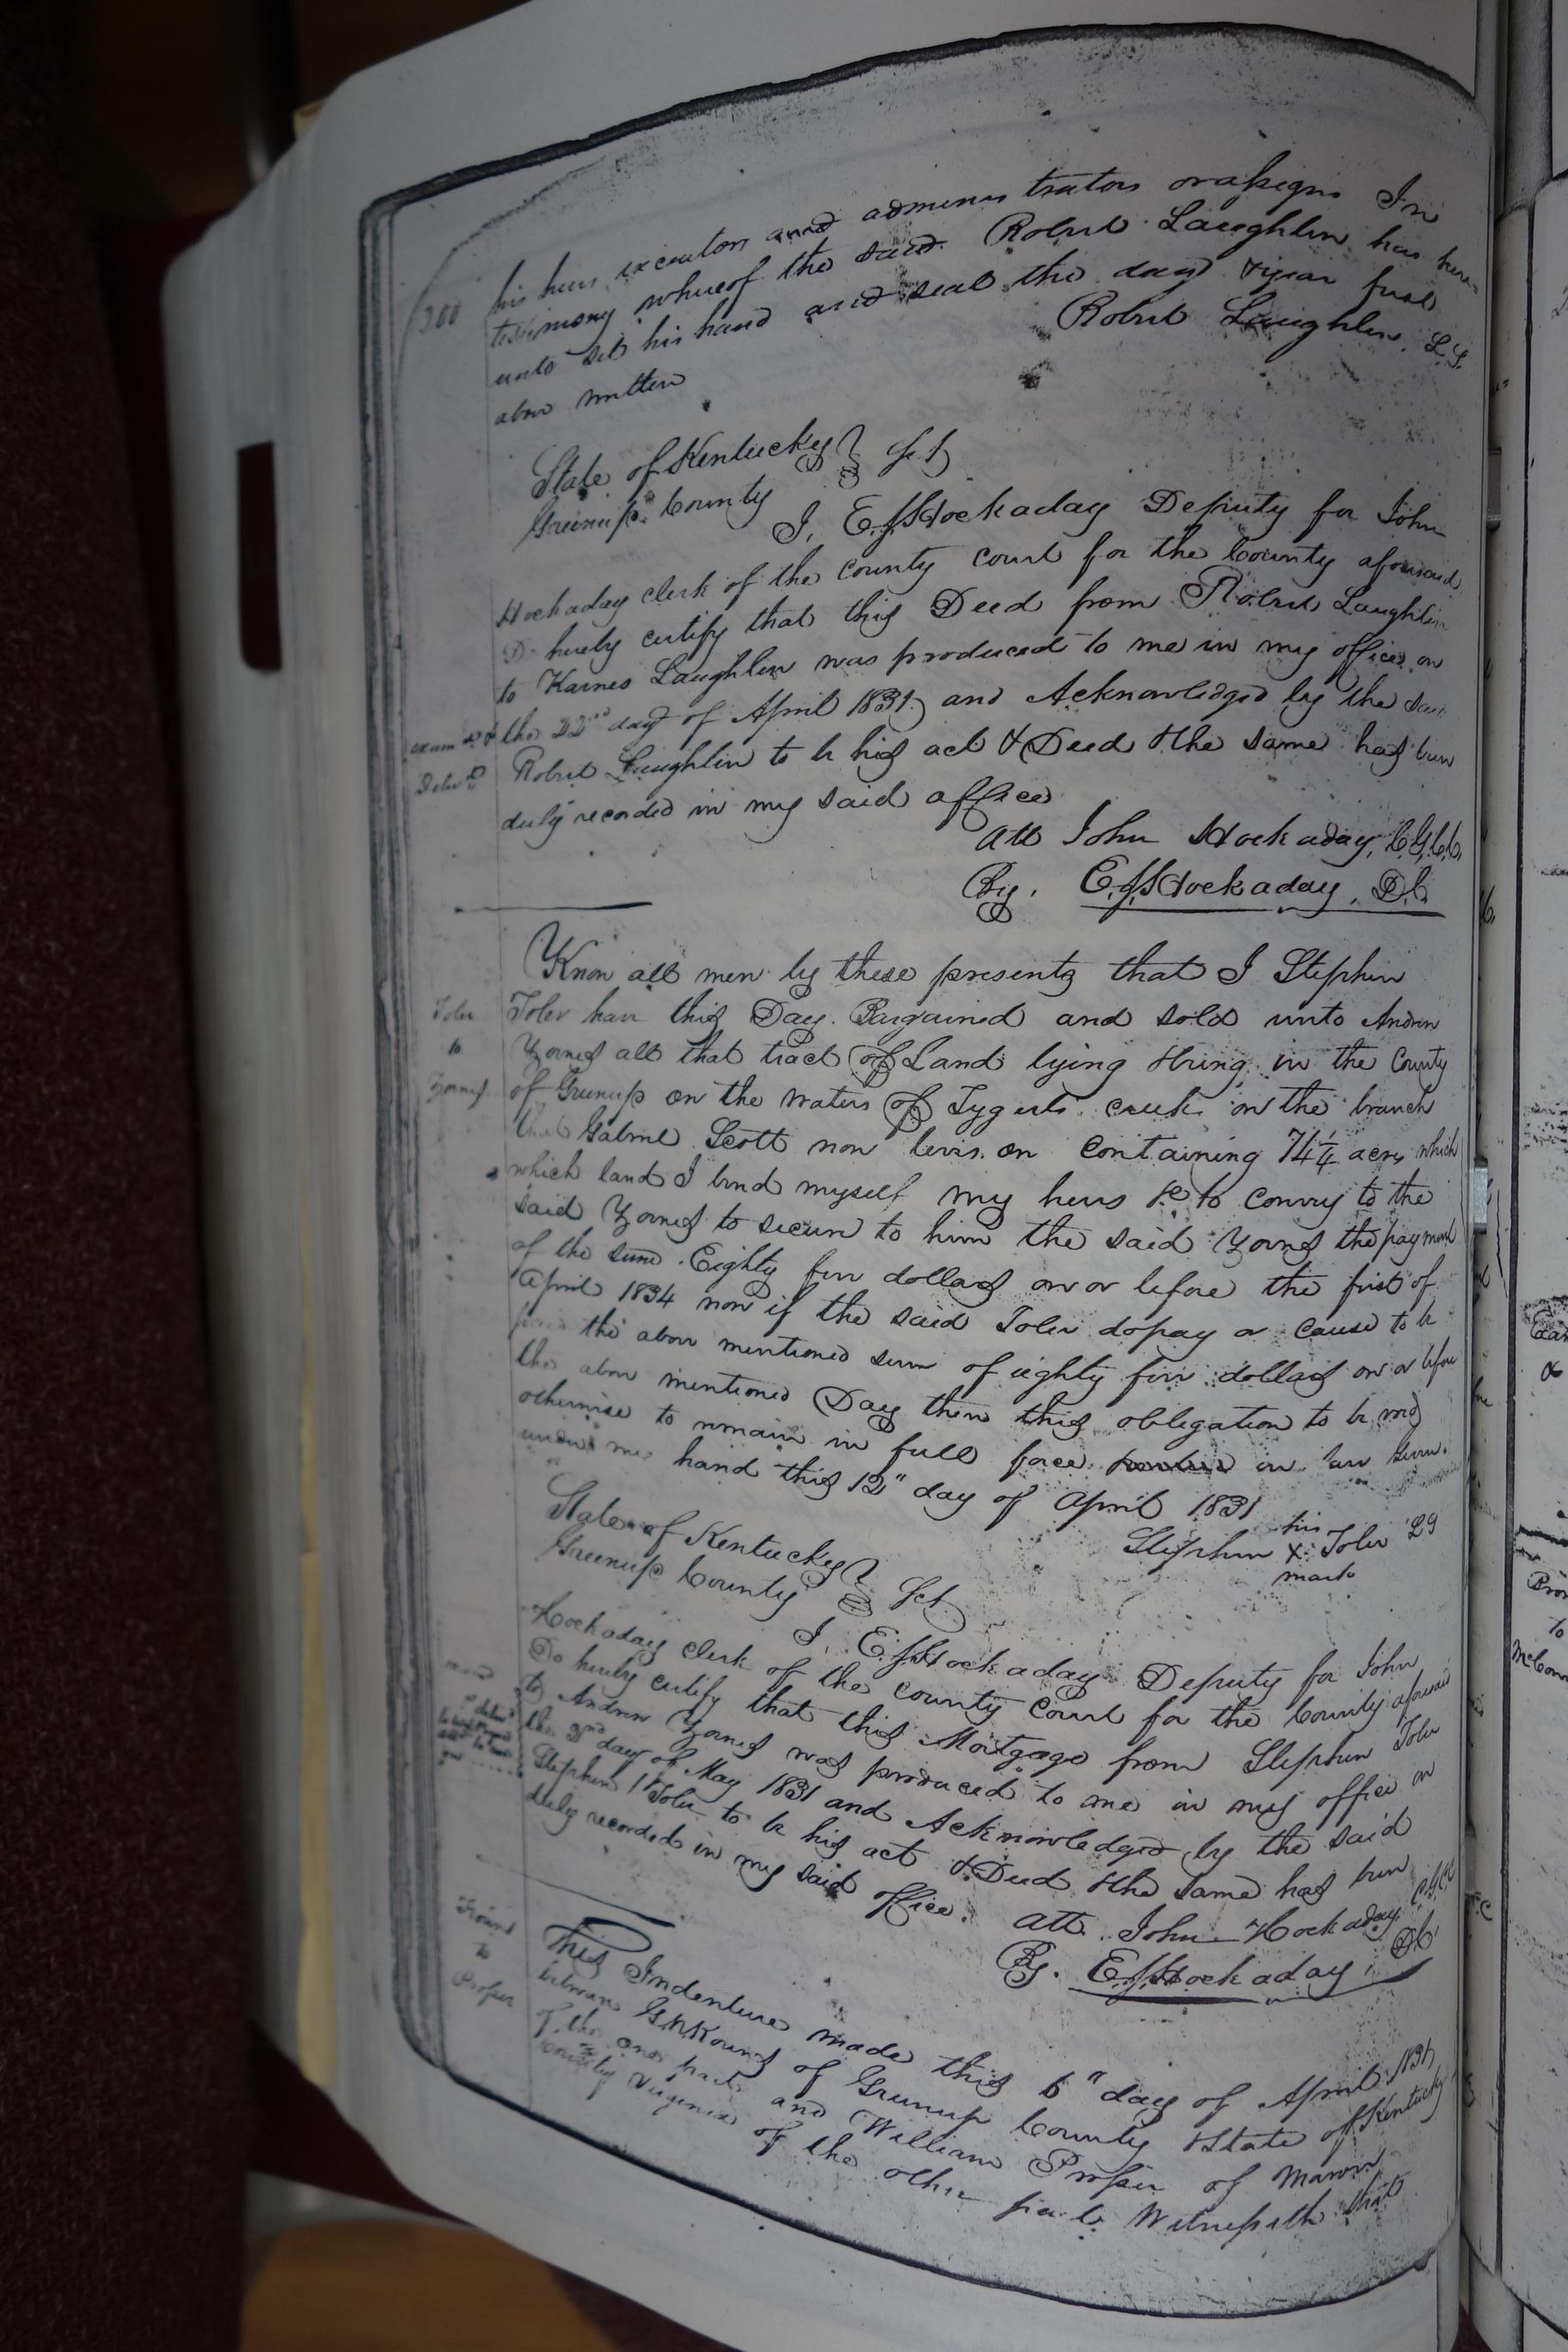 300
his heirs executors and adminis trators or assigns In
testimony whereof the said Robert Laughlin has here=
unto set his hand and seal the day & year first
above written
Robert Laughlin L.S.
State of Kentucky } Sct
Greenup County
I, E.J. Hockaday Deputy for John
Hockaday clerk of the county court for the County aforesaid
Do hereby certify that this Deed from Robert Laughlin
to Karnes Laughlin was produced to me in my office on
the 22nd day of April 1831 and Acknowledged by the said
Robert Laughlin to be his act & Deed & the same has been
duly recorded in my said office
Att John Hockaday, C.G.C.C.
By. E.J. Hockaday, D.C.
Toler
to
Zornes
Know all men by these presents that I Stephen
Toler have this Day Bargained and sold unto Andrew
Zornes all that tract of Land lying & being in the County
of Greenup on the waters of Tygerts creek on the branch
that Gabriel Scott now lives on containing 74 1/4 acres which
which land I bind myself my heirs &c to convey to the
said Zornes to secure to him the said Zornes the payment
of the sum Eighty five dollars on or before the first of
April 1834 now if the said Toler do pay or cause to be
paid the above mentioned sum of eighty five dollars on or before
the above mentioned Day then this obligation to be void
otherwise to remain in full force in law Given
under my hand this 12" day of April 1831
Stephen his X mark Toler LS
State of Kentucky } Sct
Greenup County
I, E.J. Hockaday Deputy for John
Hockaday clerk of the county Court for the County aforesaid
Do hereby certify that this Mortgage from Stephen Toler
to Andrew Zornes was produced to me in my office on
the 2nd day of May 1831 and Acknowledged by the said
Stephen Toler to be his act & Deed & the same has been
duly recorded in my said office.
Att. John Hockaday C.G.C.C.
By. E.J. Hockaday, D.C.
Kouns
to
Prosser
This Indenture made this 6" day of April 1831
between G.N. Kouns of Greenup County & State of Kentucky
of the one part and William Prosser of Mason
County Virginia of the other part Witnesseth that